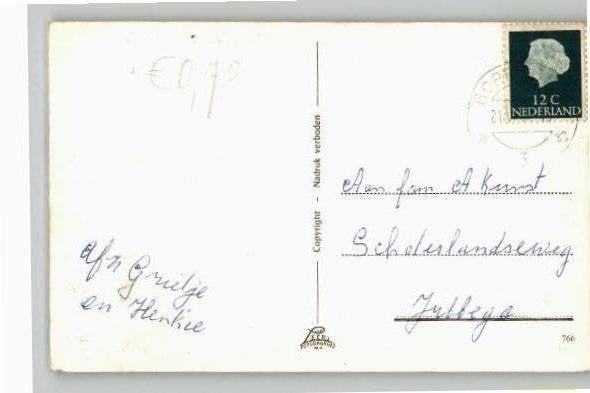 €0,75
12 C
NEDERLAND
Copyright - Nadruk verboden
Aan fam A Kunst
Schoterlandseweg
Jubbega
afz Grietje
en Henkie
766